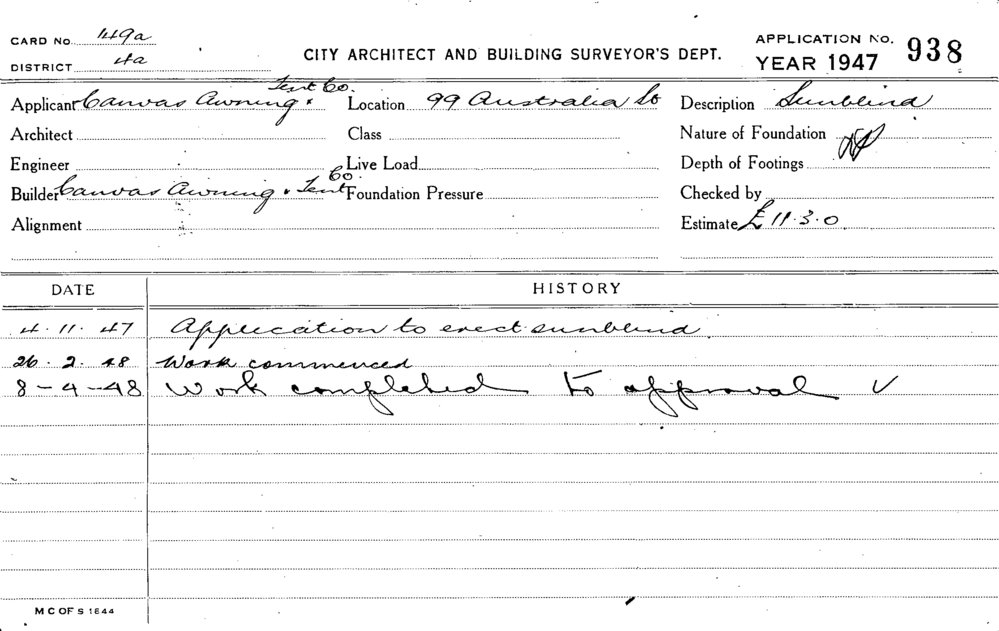 CARD No. 149a
DISTRICT 4a
CITY ARCHITECT AND BUILDING SURVEYOR'S DEPT.
APPLICATION No. 938
YEAR 1947
Applicant Canvas Awning & Tent Co.
Location 99 Australia St
Description Sunblind
Architect
Class
Nature of Foundation
Engineer
Live Load
Depth of Footings
Builder Canvas Awning & Tent Co.
Foundation Pressure
Checked by
Alignment
Estimate £11.3.0
DATE HISTORY
4.11.47 Application to erect sunblind
26.2.48 Work commenced
8-4-48 Work completed to approval ✓
M C OF S 1844